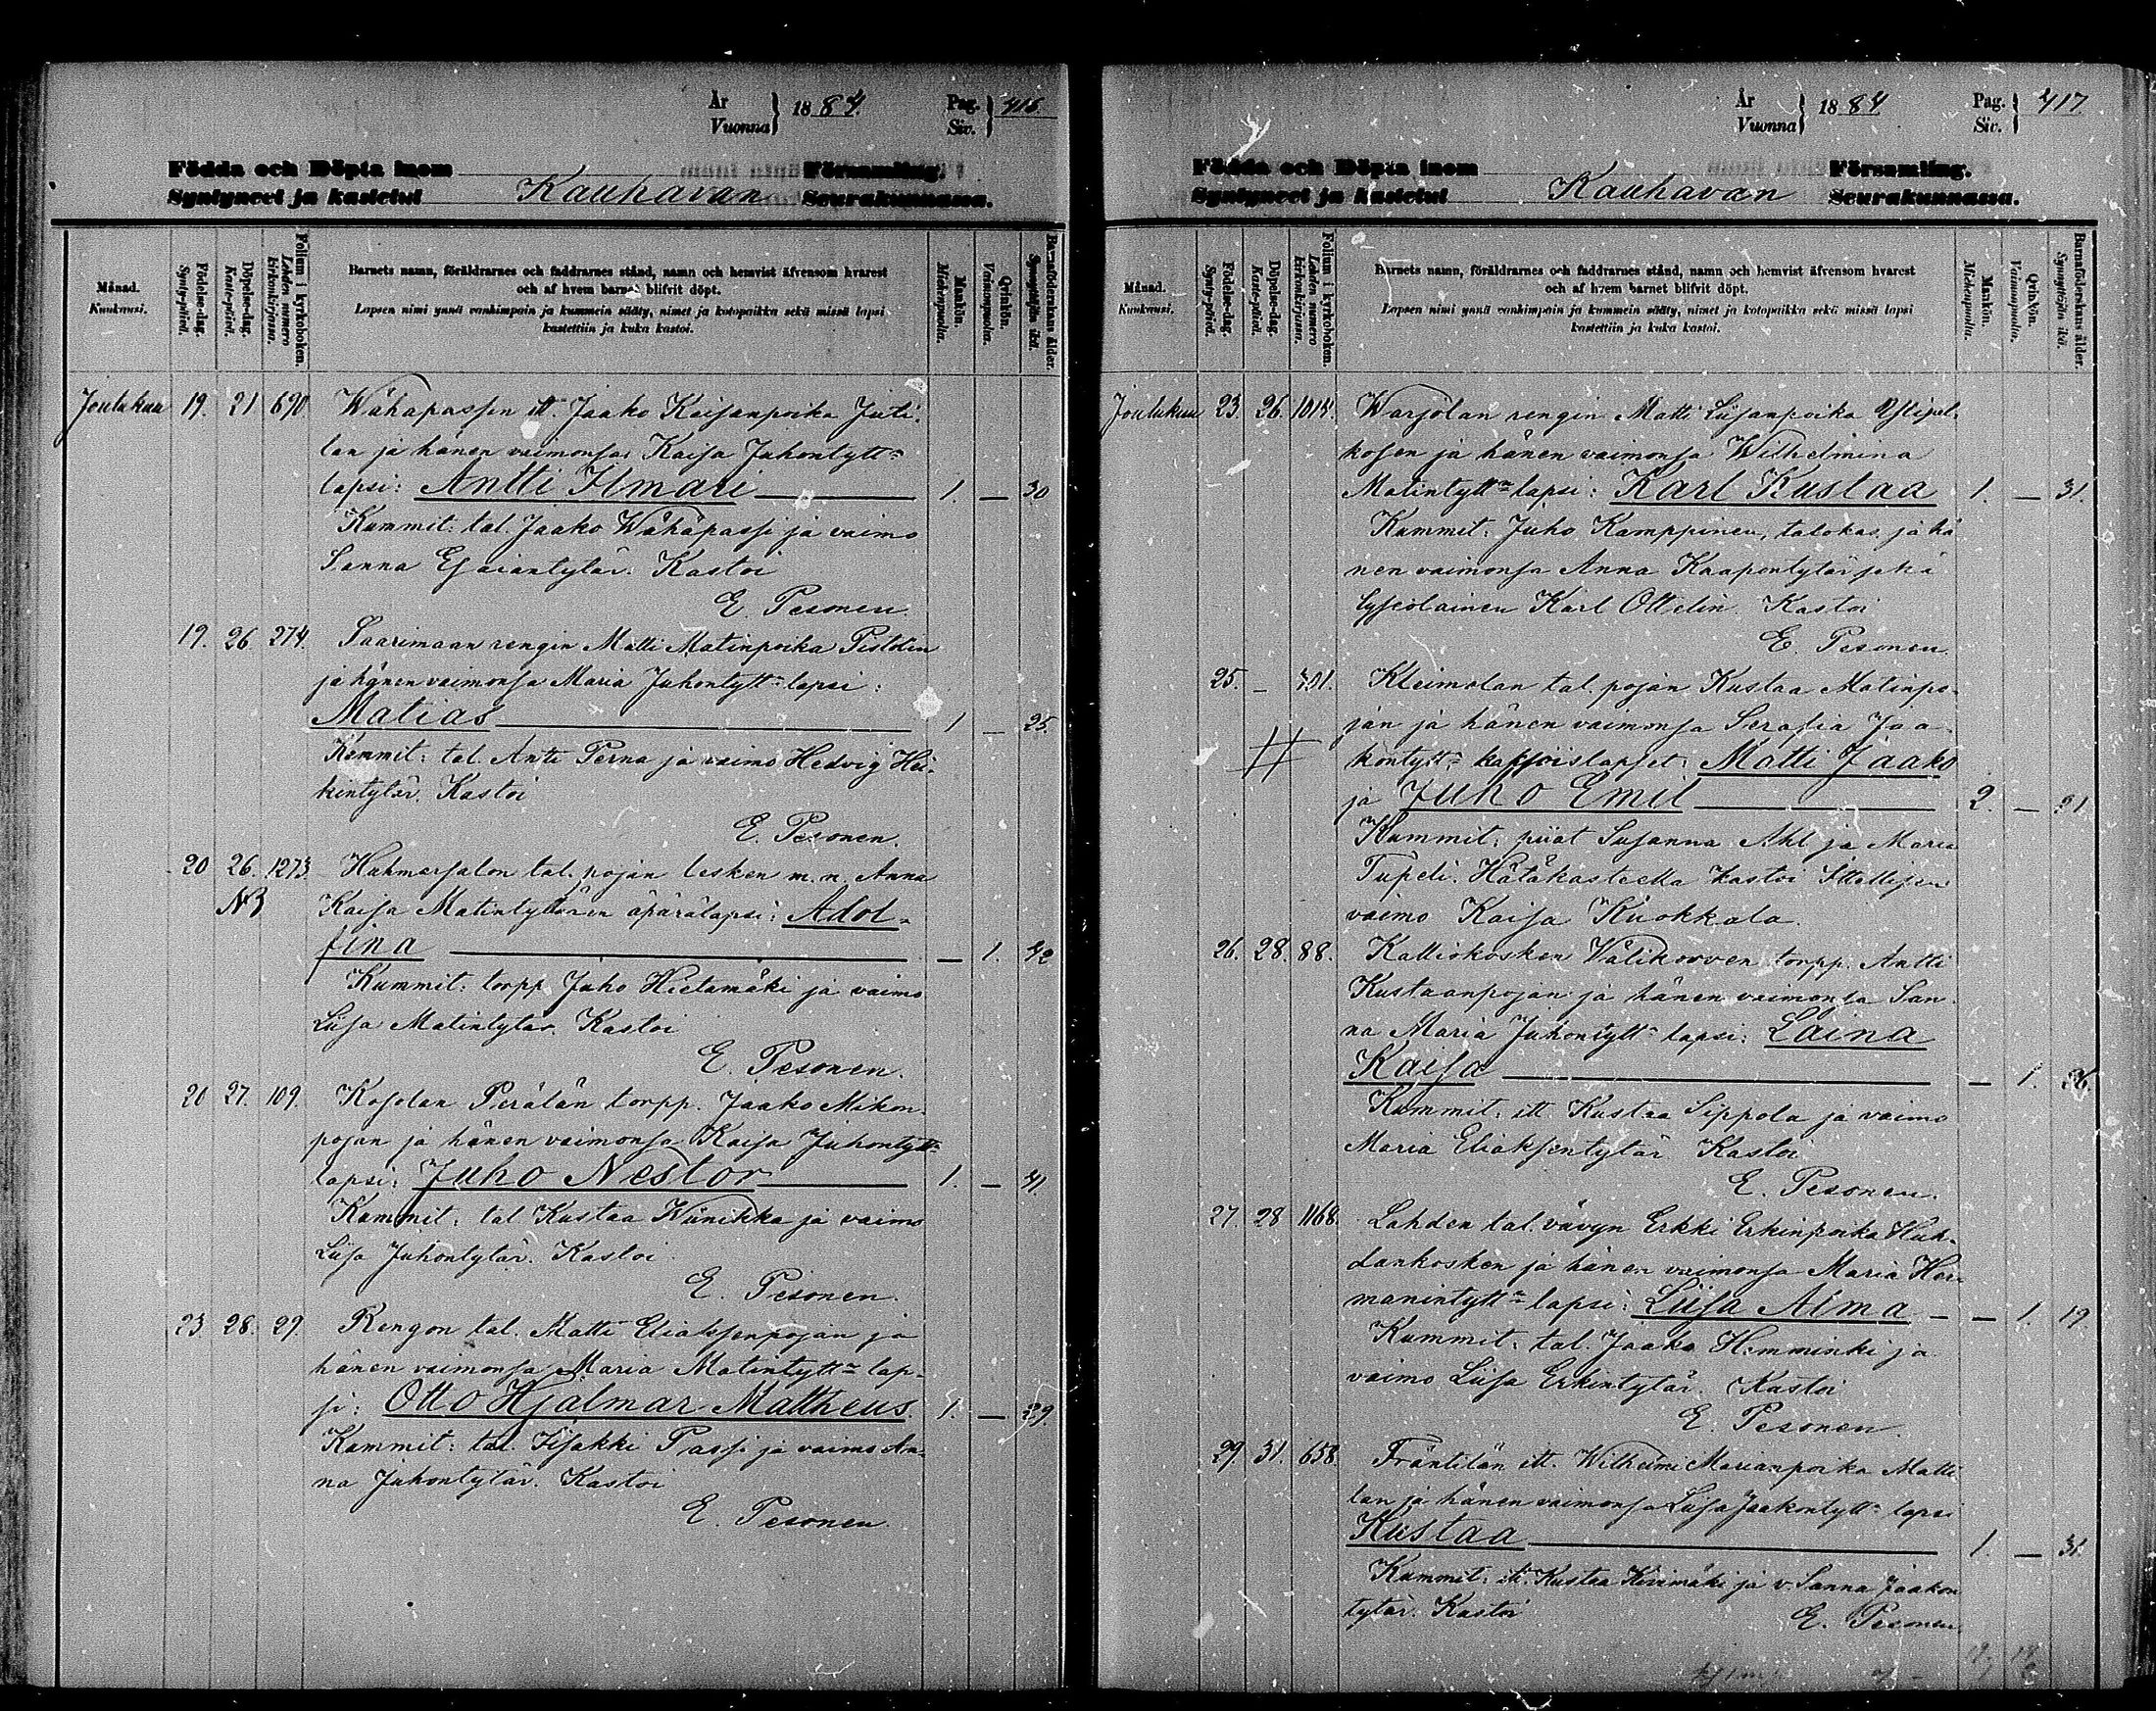 År Vuonna } 1884. Pag. Siv. } 416.
Födda och Döpta inom Församling.
Syntyneet ja kastetut Kauhavan Seurakunnassa.
Månad. Kuukausi.
Födelse-dag. Synty-päivä.
Döpelse-dag. Kaste-päivä.
Folium i kyrkoboken. Lehden numero kirkonkirjassa.
Barnets namn, föräldrarnes och faddrarnes stånd, namn och hemvist äfvensom hvarest
och af hvem barnet blifvit döpt.
Lapsen nimi ynnä vanhimpain ja kummein sääty, nimet ja kotopaikka sekä missä lapsi
kastettiin ja kuka kastoi.
Mankön. Miehenpuolia.
Qvinkön. Vaimonpuolia.
Barnaföderskans ålder. Synnyttäjän ikä.
Joulukuu 19. 21 690 Wähäpassin itt. Jaako Kaisanpoika Juti-
lan ja hänen vaimonsa Kaisa Juhontytt-
lapsi: Antti Ilmari 1. — 30
Kummit: tal. Jaako Wähäpassi ja vaimo
Sanna Esaiantytär. Kastoi
E. Pesonen
19. 26 274. Saarimaan rengin Matti Matinpoika Pistolin
ja hänen vaimonsa Maria Juhontytt- lapsi:
Matias 1 — 25.
Kummit: tal. Antti Perna ja vaimo Hedvig Hei-
kintytär. Kastoi
E. Pesonen.
20 26. 1273 Huhmarsalon tal. pojan lesken m.n. Anna
N3 Kaisa Matintytären äpärälapsi: Adol-
fina — 1. 42
Kummit: torpp. Juho Hietamäki ja vaimo
Liisa Matintytär. Kastoi
E. Pesonen.
20 27. 109. Kosolan Perälän torpp. Jaako Mikon-
pojan ja hänen vaimonsa Kaisa Juhontytt-
lapsi: Juho Nestor 1. — 41
Kummit: tal. Kustaa Wiinikka ja vaimo
Liisa Juhontytär. Kastoi
E. Pesonen.
23. 28. 29. Rengon tal. Matti Eliaksenpojan ja
hänen vaimonsa Maria Matintytt- lap-
si: Otto Hjalmar Mattheus 1. — 29
Kummit: tal. Iisakki Passi ja vaimo An-
na Juhontytär. Kastoi
E. Pesonen.
År Vuonna } 1884 Pag. Siv. } 417.
Födda och Döpta inom Församling.
Syntyneet ja kastetut Kauhavan Seurakunnassa.
Månad. Kuukausi.
Födelse-dag. Synty-päivä.
Döpelse-dag. Kaste-päivä.
Folium i kyrkoboken. Lehden numero kirkonkirjassa.
Barnets namn, föräldrarnes och faddrarnes stånd, namn och hemvist äfvensom hvarest
och af hvem barnet blifvit döpt.
Lapsen nimi ynnä vanhimpain ja kummein sääty, nimet ja kotopaikka sekä missä lapsi
kastettiin ja kuka kastoi.
Mankön. Miehenpuolia.
Qvinkön. Vaimonpuolia.
Barnaföderskans ålder. Synnyttäjän ikä.
Joulukuu 23. 26. 1014. Warjolan rengin Matti Liisanpoika Ylipel-
kosen ja hänen vaimonsa Wilhelmina
Matintytt- lapsi: Karl Kustaa 1. — 31.
Kummit: Juho Kamppinen, talokas ja hä-
nen vaimonsa Anna Kaapontytär sekä
lyseolainen Karl Ottelin. Kastoi
E. Pesonen.
25. — 701. Kleimolan tal. pojan Kustaa Matinpo-
jan ja hänen vaimonsa Serafia Jaa-
kontytt- kaksoislapset: Matti Jaako
ja Juho Emil 2. — 21.
Kummit: piiat Susanna Ahl ja Maria
Tupeli. Hätäkasteella kastoi Itsellisen
vaimo Kaisa Kuokkala.
26. 28. 88. Kalliokosken Välikorven torpp. Antti
Kustaanpojan ja hänen vaimonsa San-
na Maria Juhontytt- lapsi: Laina
Kaisa — 1. 26.
Kummit: itt. Kustaa Sippola ja vaimo
Maria Eliaksentytär. Kastoi
E. Pesonen.
27. 28 1168. Lahden tal. vävyn Erkki Erkinpoika Huh-
tankosken ja hänen vaimonsa Maria Her-
manintytt- lapsi: Liisa Alma — — 1. 19
Kummit: tal. Jaako Hemminki ja
vaimo Liisa Erkintytär. Kastoi
E. Pesonen.
29. 31. 658. Fräntilän itt. Wilhelmi Marianpoika Matti-
lan ja hänen vaimonsa Liisa Jaakontytt- lapsi
Kustaa 1. — 31.
Kummit: itt. Kustaa Kivimäki ja v. Sanna Jaakon-
tytär. Kastoi E. Pesonen